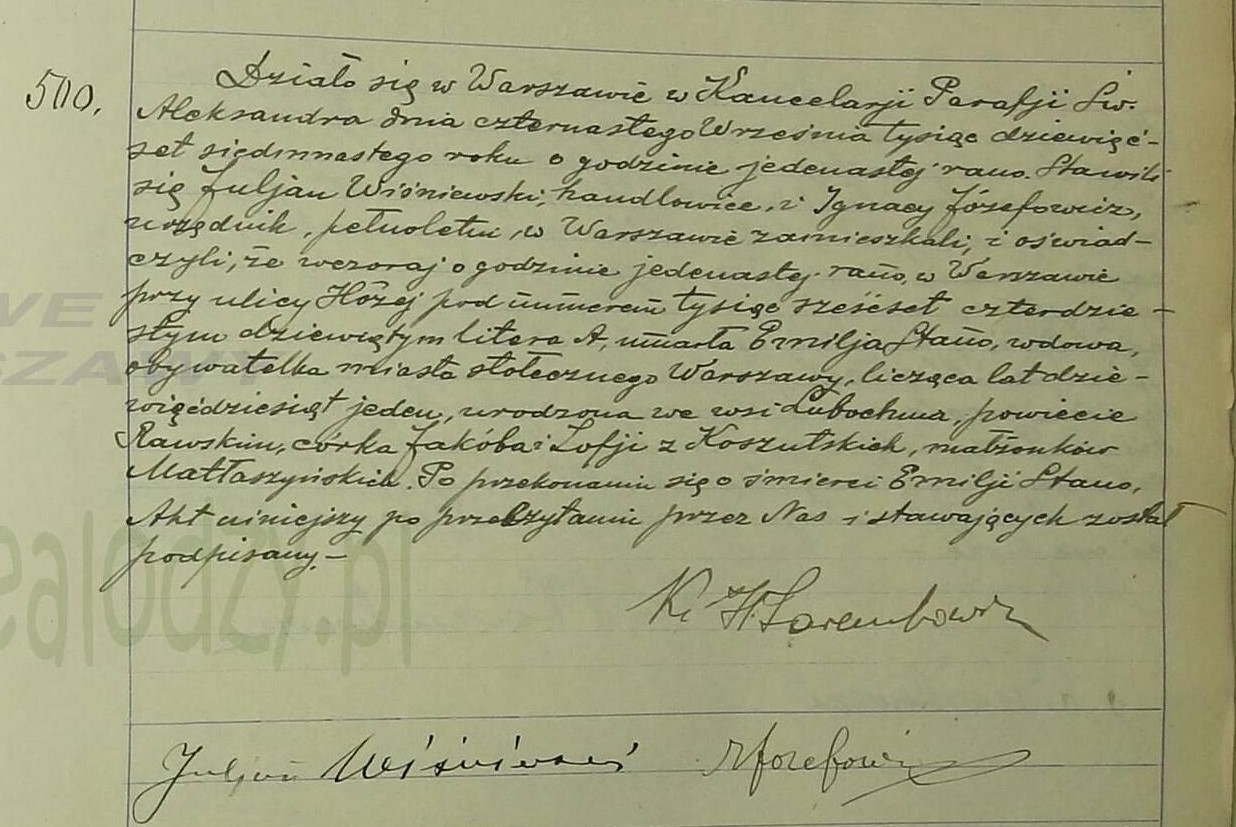 500.
Działo się w Warszawie w Kancelarji Parafji Św.
Aleksandra dnia czternastego Września tysiąc dziewięć-
set siedmnastego roku o godzinie jedenastej rano. Stawili
się Juljan Wiśniewski, handlowiec, i Ignacy Józefowicz,
urzędnik, pełnoletni, w Warszawie zamieszkali, i oświad-
czyli, że wczoraj o godzinie jedenastej rano, w Warszawie
przy ulicy Hożej pod numerem tysiąc sześćset czterdzie-
stym dziewiątym litera A, umarła Emilja Stano, wdowa,
obywatelka miasta stołecznego Warszawy, licząca lat dzie-
więćdziesiąt jeden, urodzona we wsi Lubochnia, powiecie
Rawskim, córka Jakóba i Zofji z Koszutskich, małżonków
Matłaszyńskich. Po przekonaniu się o śmierci Emilji Stano,
Akt niniejszy po przeczytaniu przez Nas i stawających został
podpisany.-
Juljan Wiśniewski Józefowicz
WE
SZAWY
ealodzy.pl